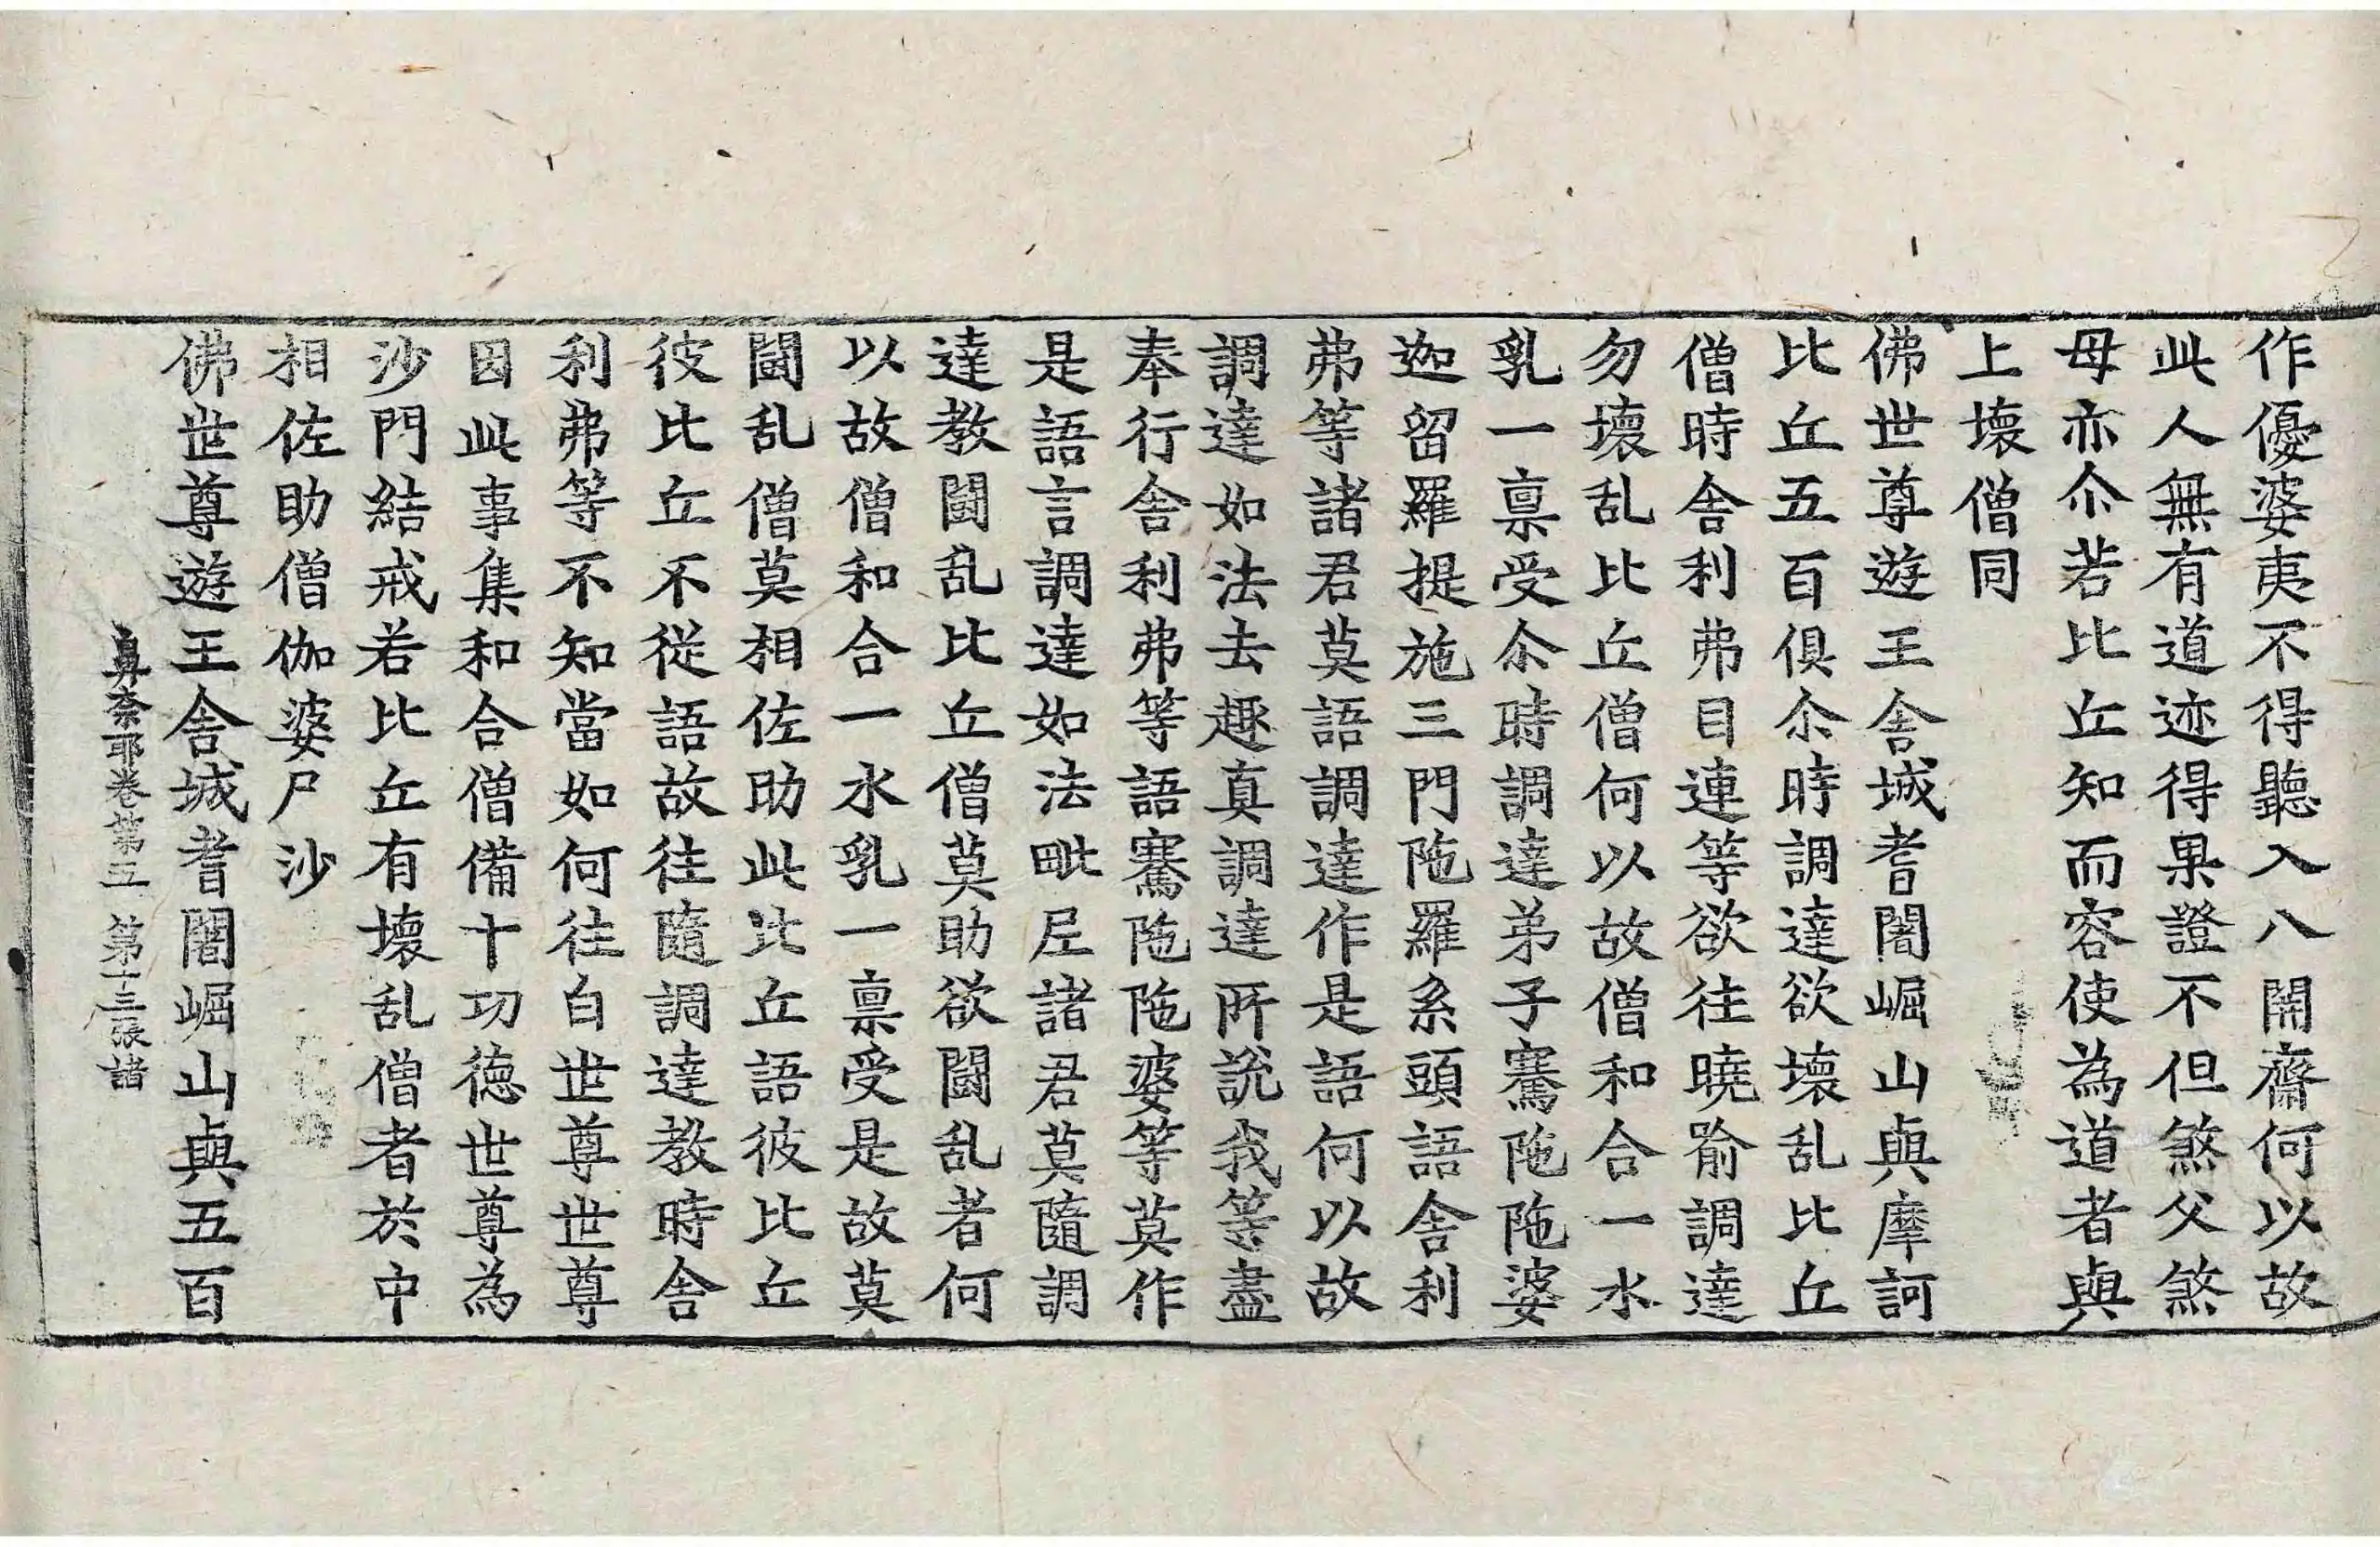 作優婆夷不得聽入八開齋何以故
此人無有道迹得果證不但煞父煞
母亦尒若比丘知而容使為道者與
上壞僧同
佛世尊遊王舍城耆闍崛山與摩訶
比丘五百俱尒時調達欲壞乱比丘
僧時舍利弗目連等欲往曉喻調達
勿壞乱比丘僧何以故僧和合一水
乳一禀受尒時調達弟子騫陁陁婆
迦留羅提施三門陁羅系頭語舍利
弗等諸君莫語調達作是語何以故
調達如法去趣真調達所說我等盡
奉行舍利弗等語騫陁陁婆等莫作
是語言調達如法毗尼諸君莫隨調
達教鬪乱比丘僧莫助欲鬪乱者何
以故僧和合一水乳一禀受是故莫
鬪乱僧莫相佐助此比丘語彼比丘
彼比丘不從語故往隨調達教時舍
利弗等不知當如何往白世尊世尊
因此事集和合僧備十功德世尊為
沙門結戒若比丘有壞乱僧者於中
相佐助僧伽婆尸沙
佛世尊遊王舍城耆闍崛山與五百
鼻奈耶卷第五 第十三張諸